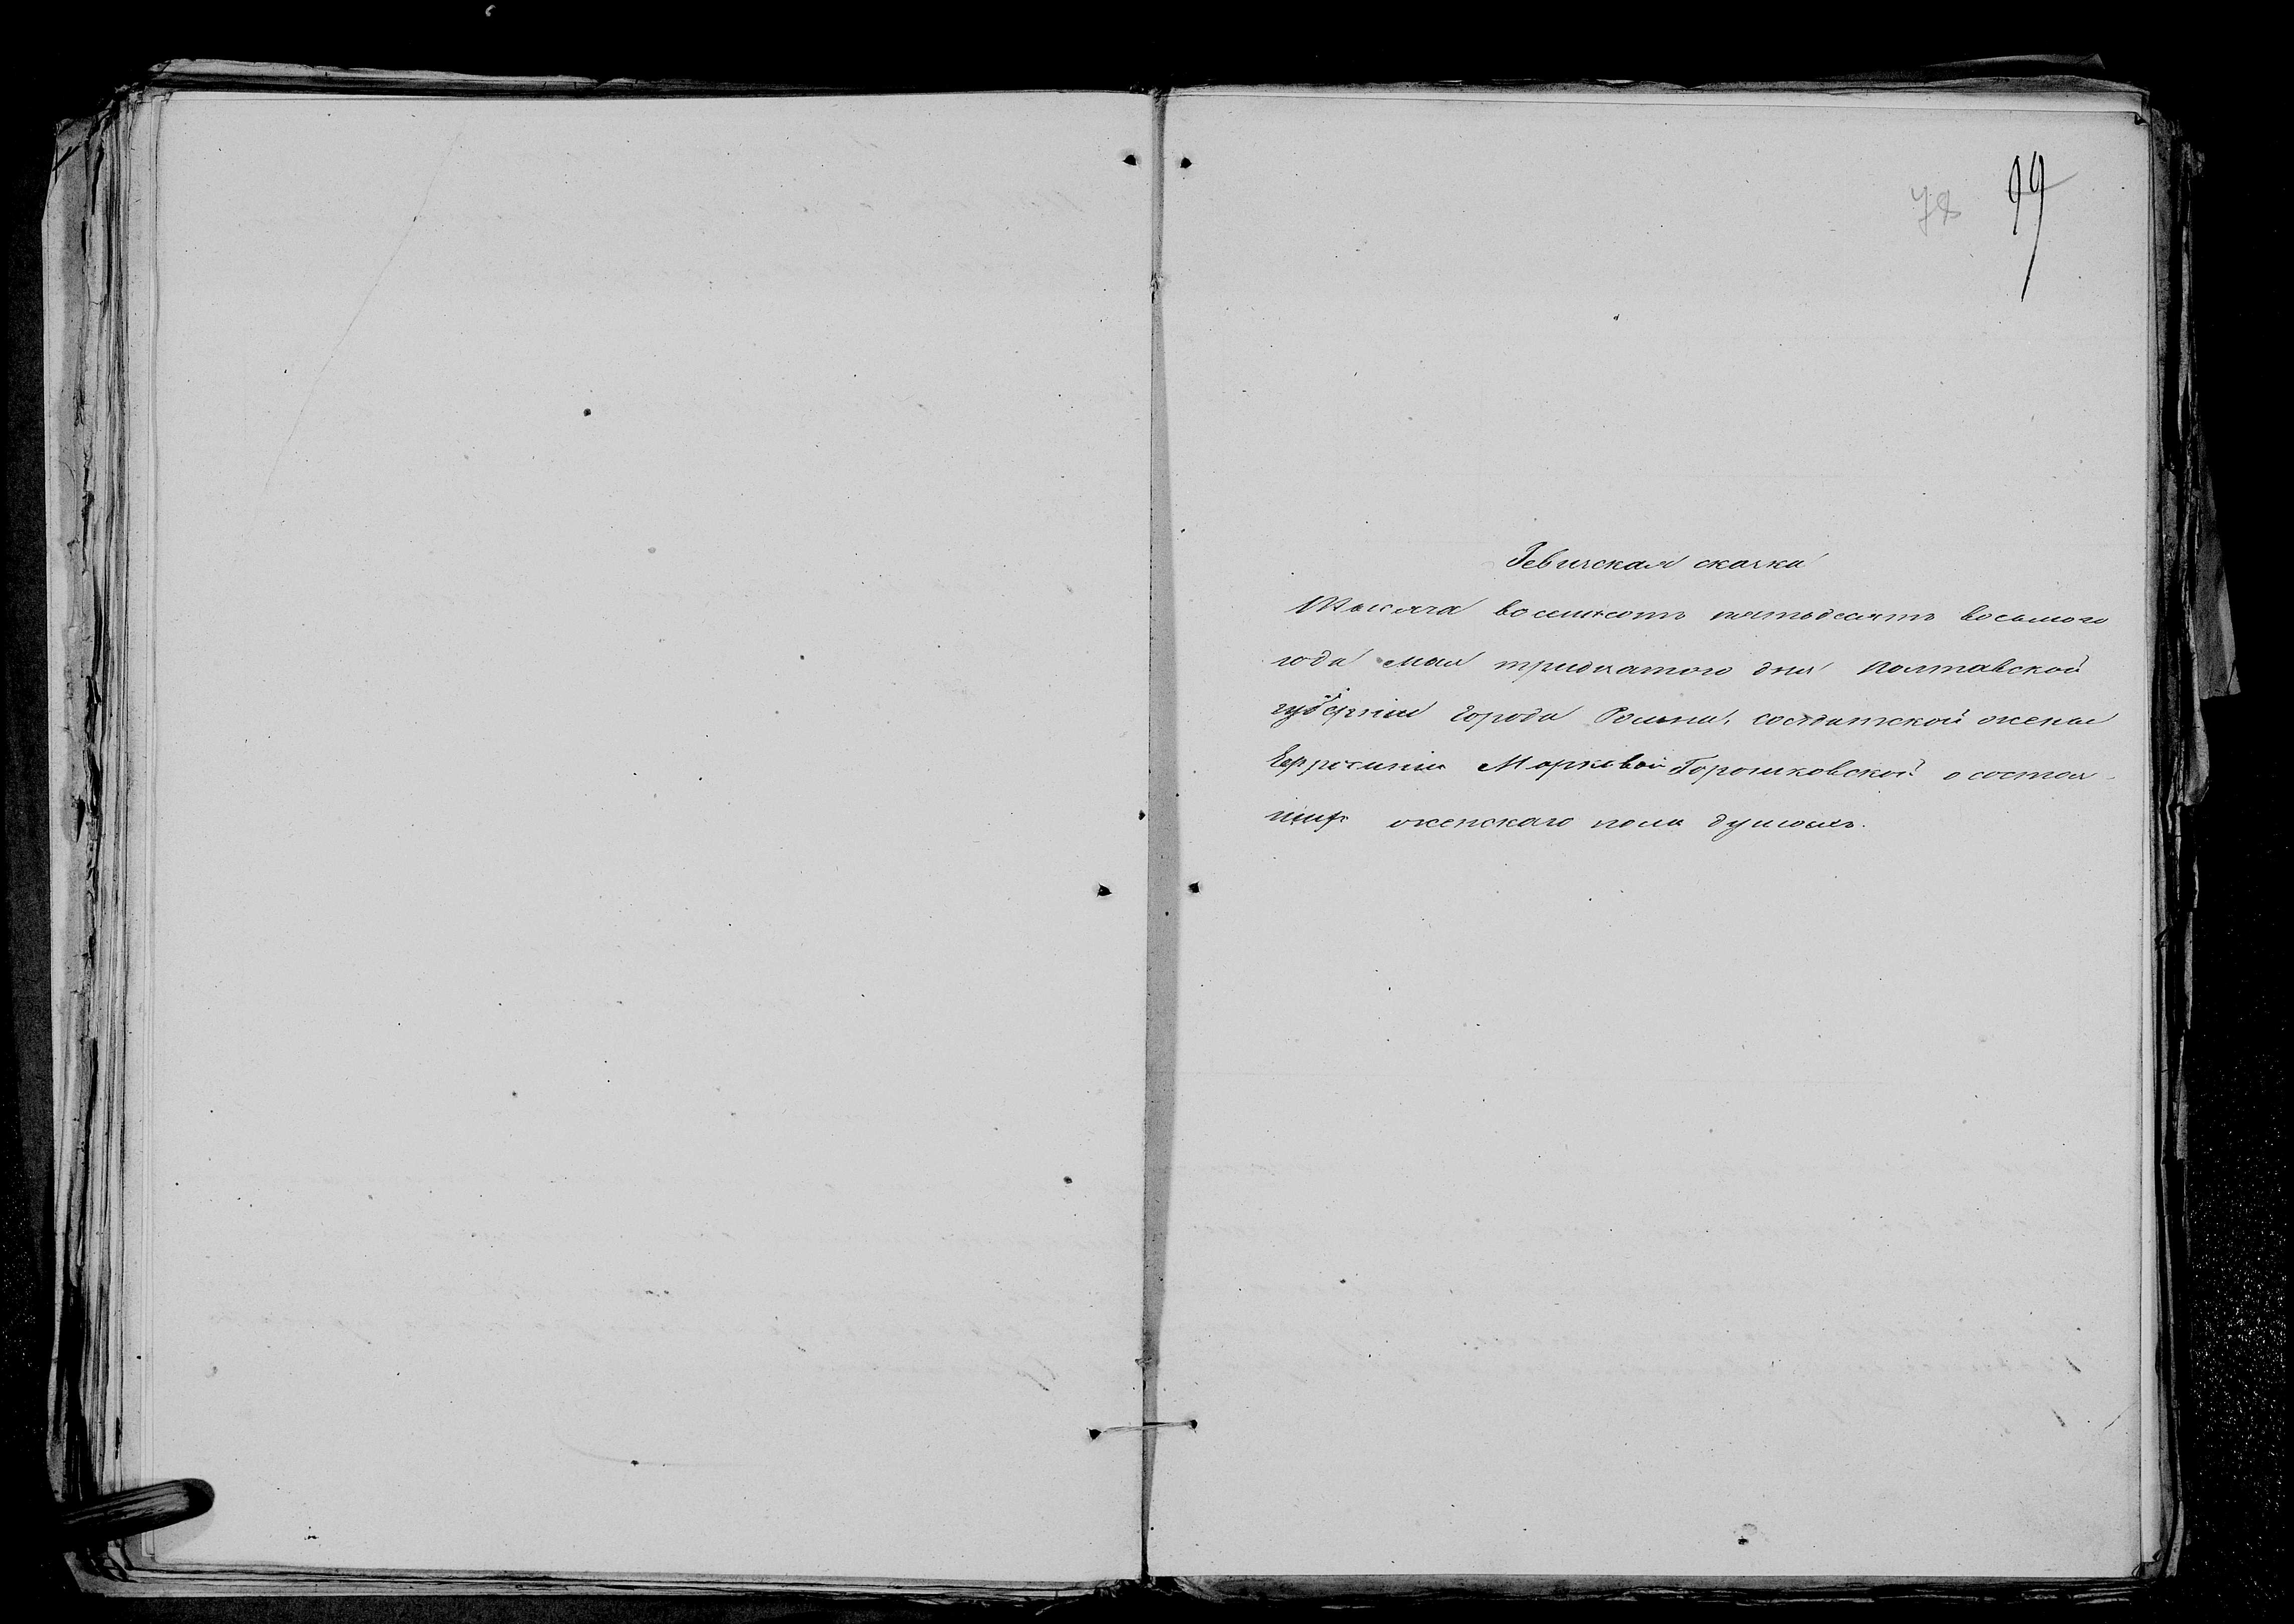 78 99
Ревизская сказка
Тысяча восемьсотъ пятьдесятъ восьмого
года мая тридцатого дня Полтавской
губерніи города Ромна, солдатской жены
Ефросиніи Марковой Горошковской о состоя-
щихъ женскаго пола душахъ.